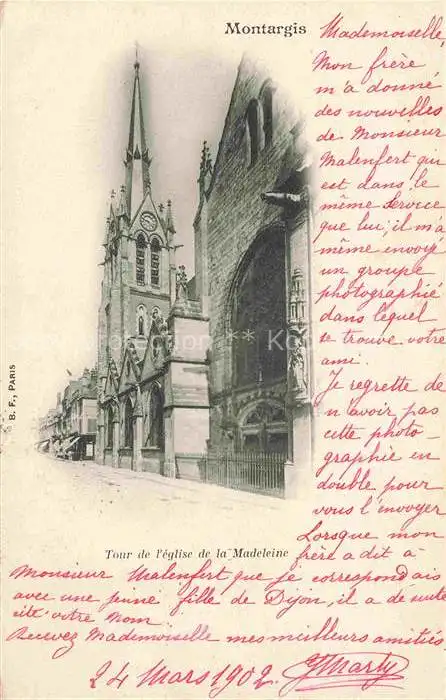 Montargis
Mademoiselle,
Mon frère
m'a donné
des nouvelles
de Monsieur
Malenfert qui
est dans le
même Service
que lui; il m'a
même envoyé
un groupe
photographié
dans lequel
se trouve votre
ami.
Je regrette de
n'avoir pas
cette photo-
graphie en
double pour
vous l'envoyer
Lorsque mon
frère a dit à
Monsieur Malenfert que je correspondais
avec une jeune fille de Dijon, il a de suite
cité votre nom.
Recevez Mademoiselle mes meilleurs amitiés
24 Mars 1902
B. F., PARIS
Tour de l'église de la Madeleine